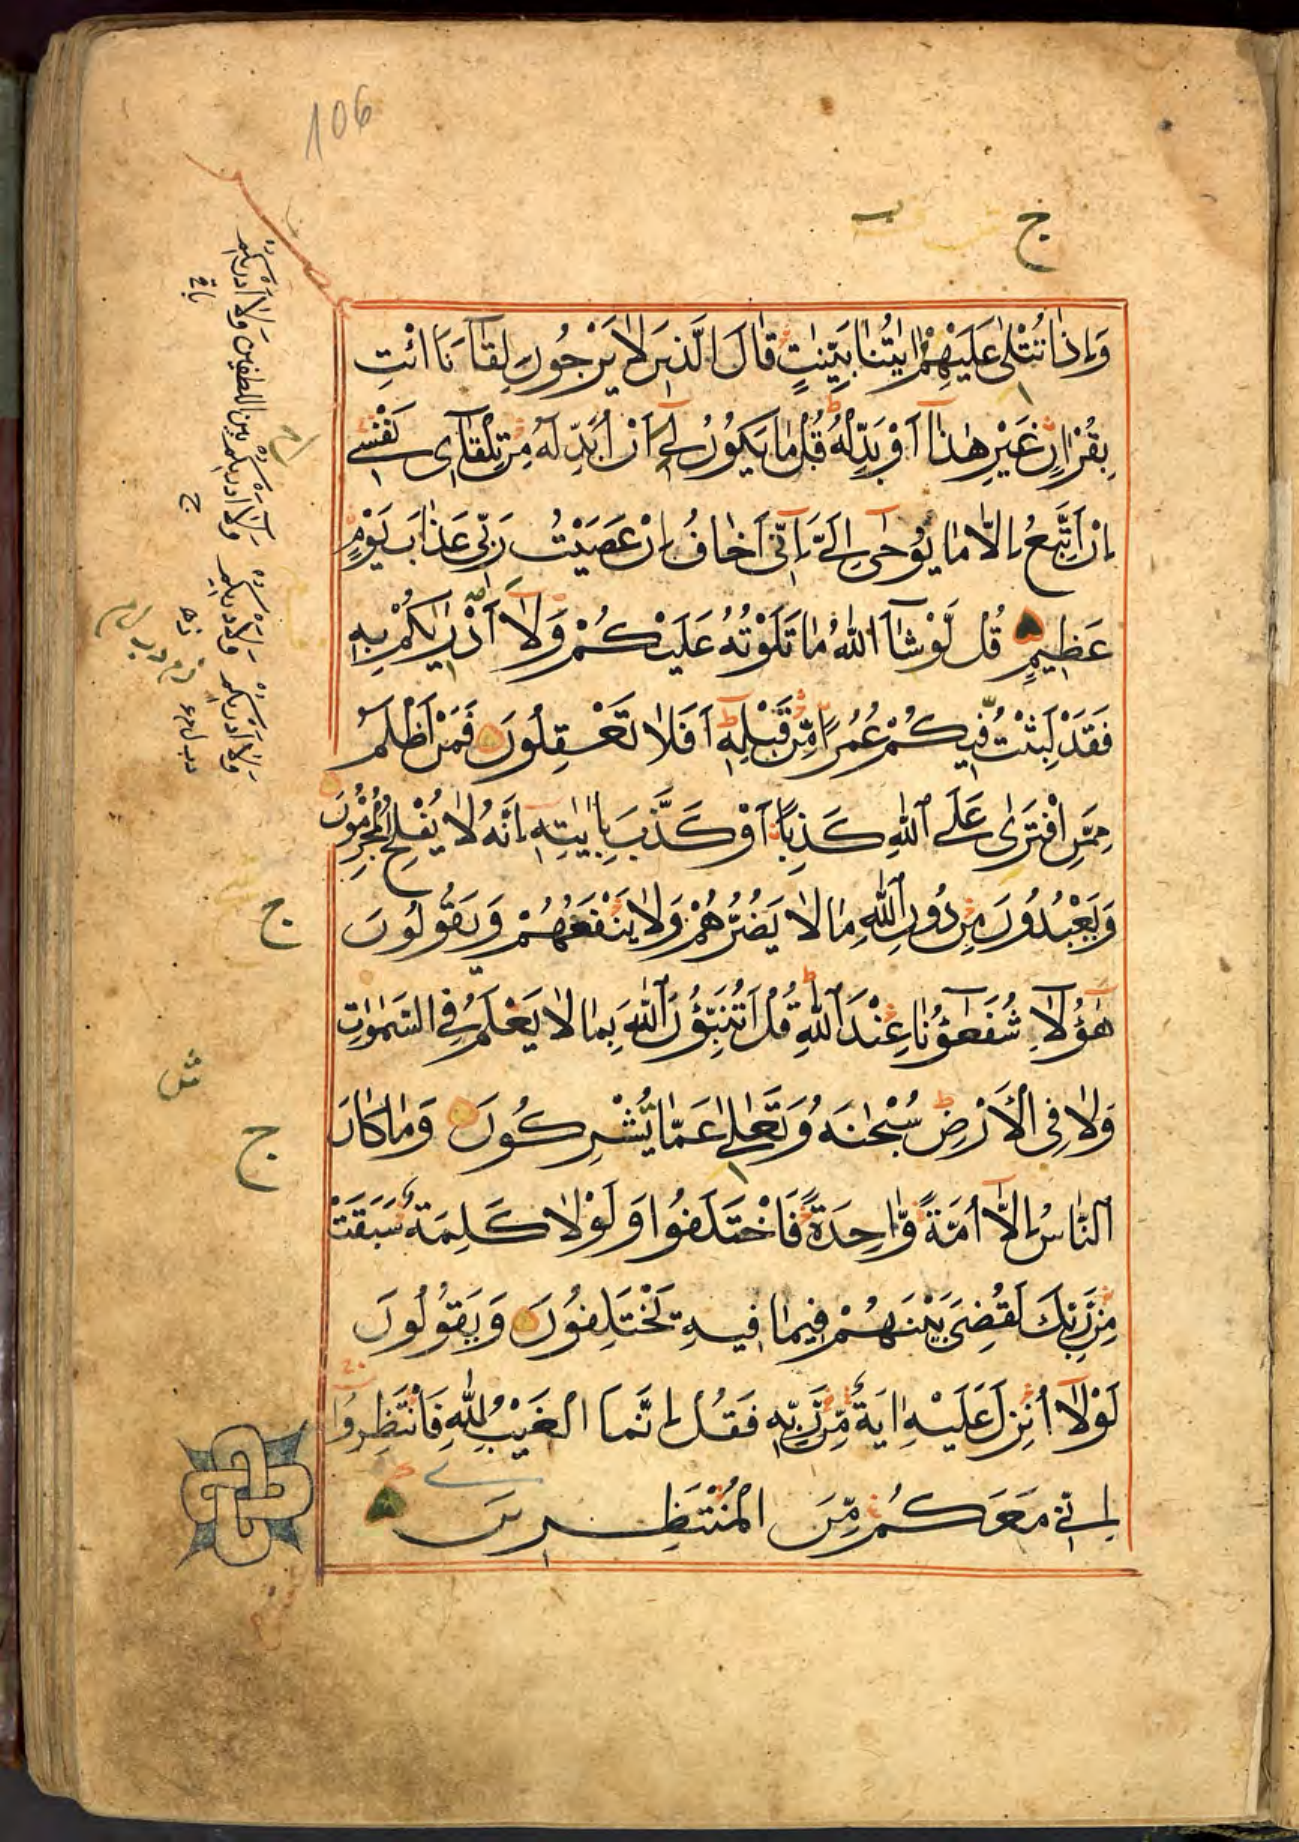 106
ج
وَاِذَا تُتْلٰى عَلَيْهِمْ اٰيٰتُنَا بَيِّنٰتٍ قَالَ الَّذِيْنَ لَا يَرْجُونَ لِقَآءَنَا ائْتِ
بِقُرْاٰنٍ غَيْرِ هٰذَآ اَوْ بَدِّلْهُ قُلْ مَا يَكُوْنُ لِيْٓ اَنْ اُبَدِّلَهُ مِنْ تِلْقَآئِ نَفْسِيْ
اِنْ اَتَّبِعُ اِلَّا مَا يُوْحٰى اِلَيَّ اِنِّيْٓ اَخَافُ اِنْ عَصَيْتُ رَبِّيْ عَذَابَ يَوْمٍ
عَظِيْمٍ قُلْ لَّوْ شَآءَ اللّٰهُ مَا تَلَوْتُهُ عَلَيْكُمْ وَلَآ اَدْرٰىكُمْ بِهٖ
فَقَدْ لَبِثْتُ فِيْكُمْ عُمُرًا مِّنْ قَبْلِهٖ اَفَلَا تَعْقِلُوْنَ فَمَنْ اَظْلَمُ
مِمَّنِ افْتَرٰى عَلَى اللّٰهِ كَذِبًا اَوْ كَذَّبَ بِاٰيٰتِهٖ اِنَّهُ لَا يُفْلِحُ الْمُجْرِمُوْنَ
وَيَعْبُدُوْنَ مِنْ دُوْنِ اللّٰهِ مَا لَا يَضُرُّهُمْ وَلَا يَنْفَعُهُمْ وَيَقُوْلُوْنَ
هٰٓؤُلَآءِ شُفَعَآؤُنَا عِنْدَ اللّٰهِ قُلْ اَتُنَبِّؤُنَ اللّٰهَ بِمَا لَا يَعْلَمُ فِي السَّمٰوٰتِ
وَلَا فِي الْاَرْضِ سُبْحٰنَهُ وَتَعٰلٰى عَمَّا يُشْرِكُوْنَ وَمَا كَانَ
النَّاسُ اِلَّآ اُمَّةً وَّاحِدَةً فَاخْتَلَفُوْا وَلَوْلَا كَلِمَةٌ سَبَقَتْ
مِنْ رَّبِّكَ لَقُضِيَ بَيْنَهُمْ فِيْمَا فِيْهِ يَخْتَلِفُوْنَ وَيَقُوْلُوْنَ
لَوْلَآ اُنْزِلَ عَلَيْهِ اٰيَةٌ مِّنْ رَّبِّهٖ فَقُلْ اِنَّمَا الْغَيْبُ لِلّٰهِ فَانْتَظِرُوْا
اِنِّيْ مَعَكُمْ مِّنَ الْمُنْتَظِرِيْنَ
ج
ج